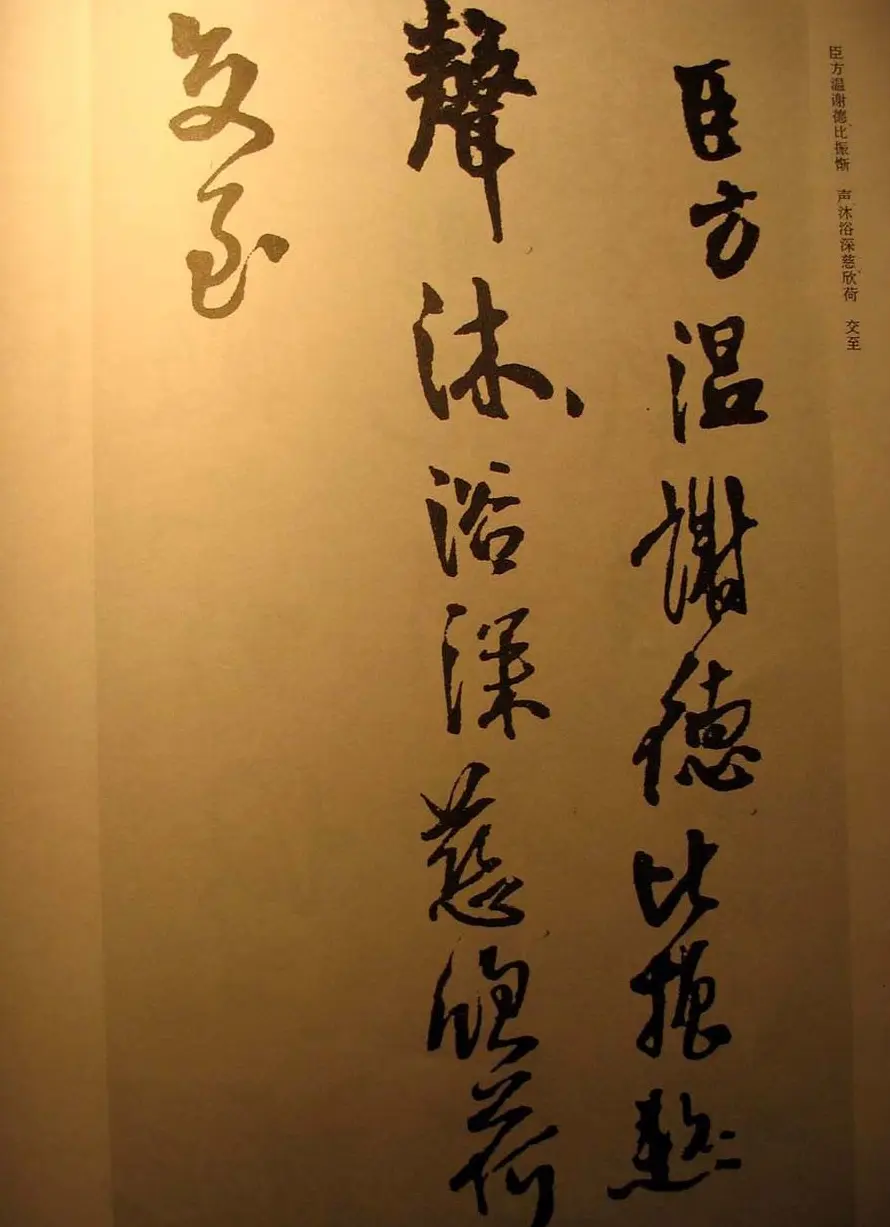 臣方温谢德比振惭 声沐浴深慈欣荷 交至
臣方温謝德比振慙
聲沐浴深慈荷
交至